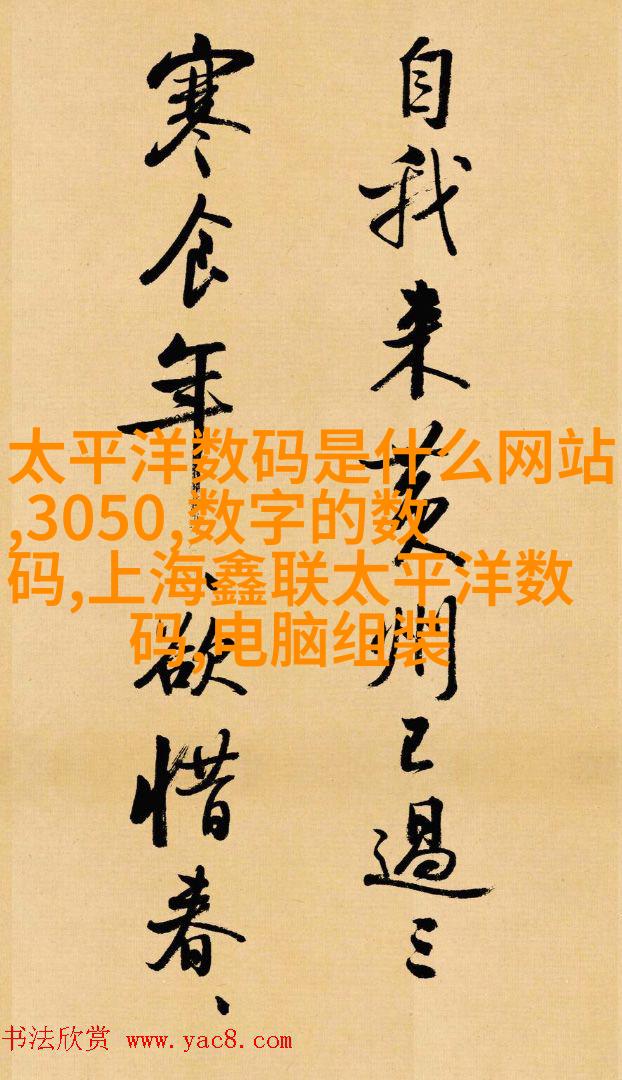 自我来黄州已過三
寒食年〻欲惜春、
太平洋数码是什么网站
,3050,数字的数
码,上海鑫联太平洋数
码,电脑组装
书法欣赏 www.yac8.com